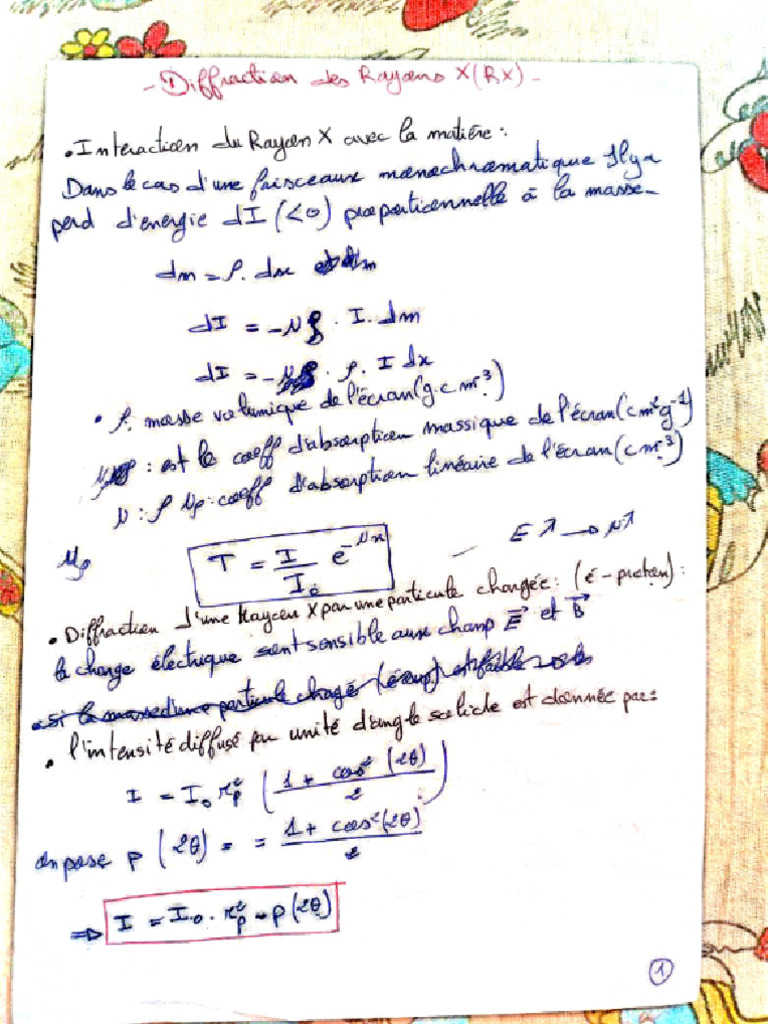 - Diffraction des Rayons X (RX) -
• Interaction du Rayon X avec la matière :
Dans le cas d'une faisceaux monochromatique Il y a
perd d'energie dI (<0) proportionnelle à la masse
dm = ρ. dx
dI = -μρ . I. dm
dI = - . ρ. I dx
• ρ. masse volumique de l'écran (g.cm⁻³)
: est le coeff d'absorption massique de l'écran (cm²g⁻¹)
μ : ρ μρ : coeff d'absorption linéaire de l'écran (cm⁻³)
μρ
T = I / I₀ e^-μx
E ↗ → μ ↗
• Diffraction d'une Rayon X par une particule chargée : (é - proton) :
la charge électrique sont sensible aux champ E⃗ et B⃗
• l'intensité diffusé par unité d'angle solide est donnée par :
I = I₀ r²p ( (1 + cos² (2θ)) / 2 )
on pose p (2θ) = = (1 + cos² (2θ)) / 2
⇒ I = I₀ . r²p . p (2θ)
1